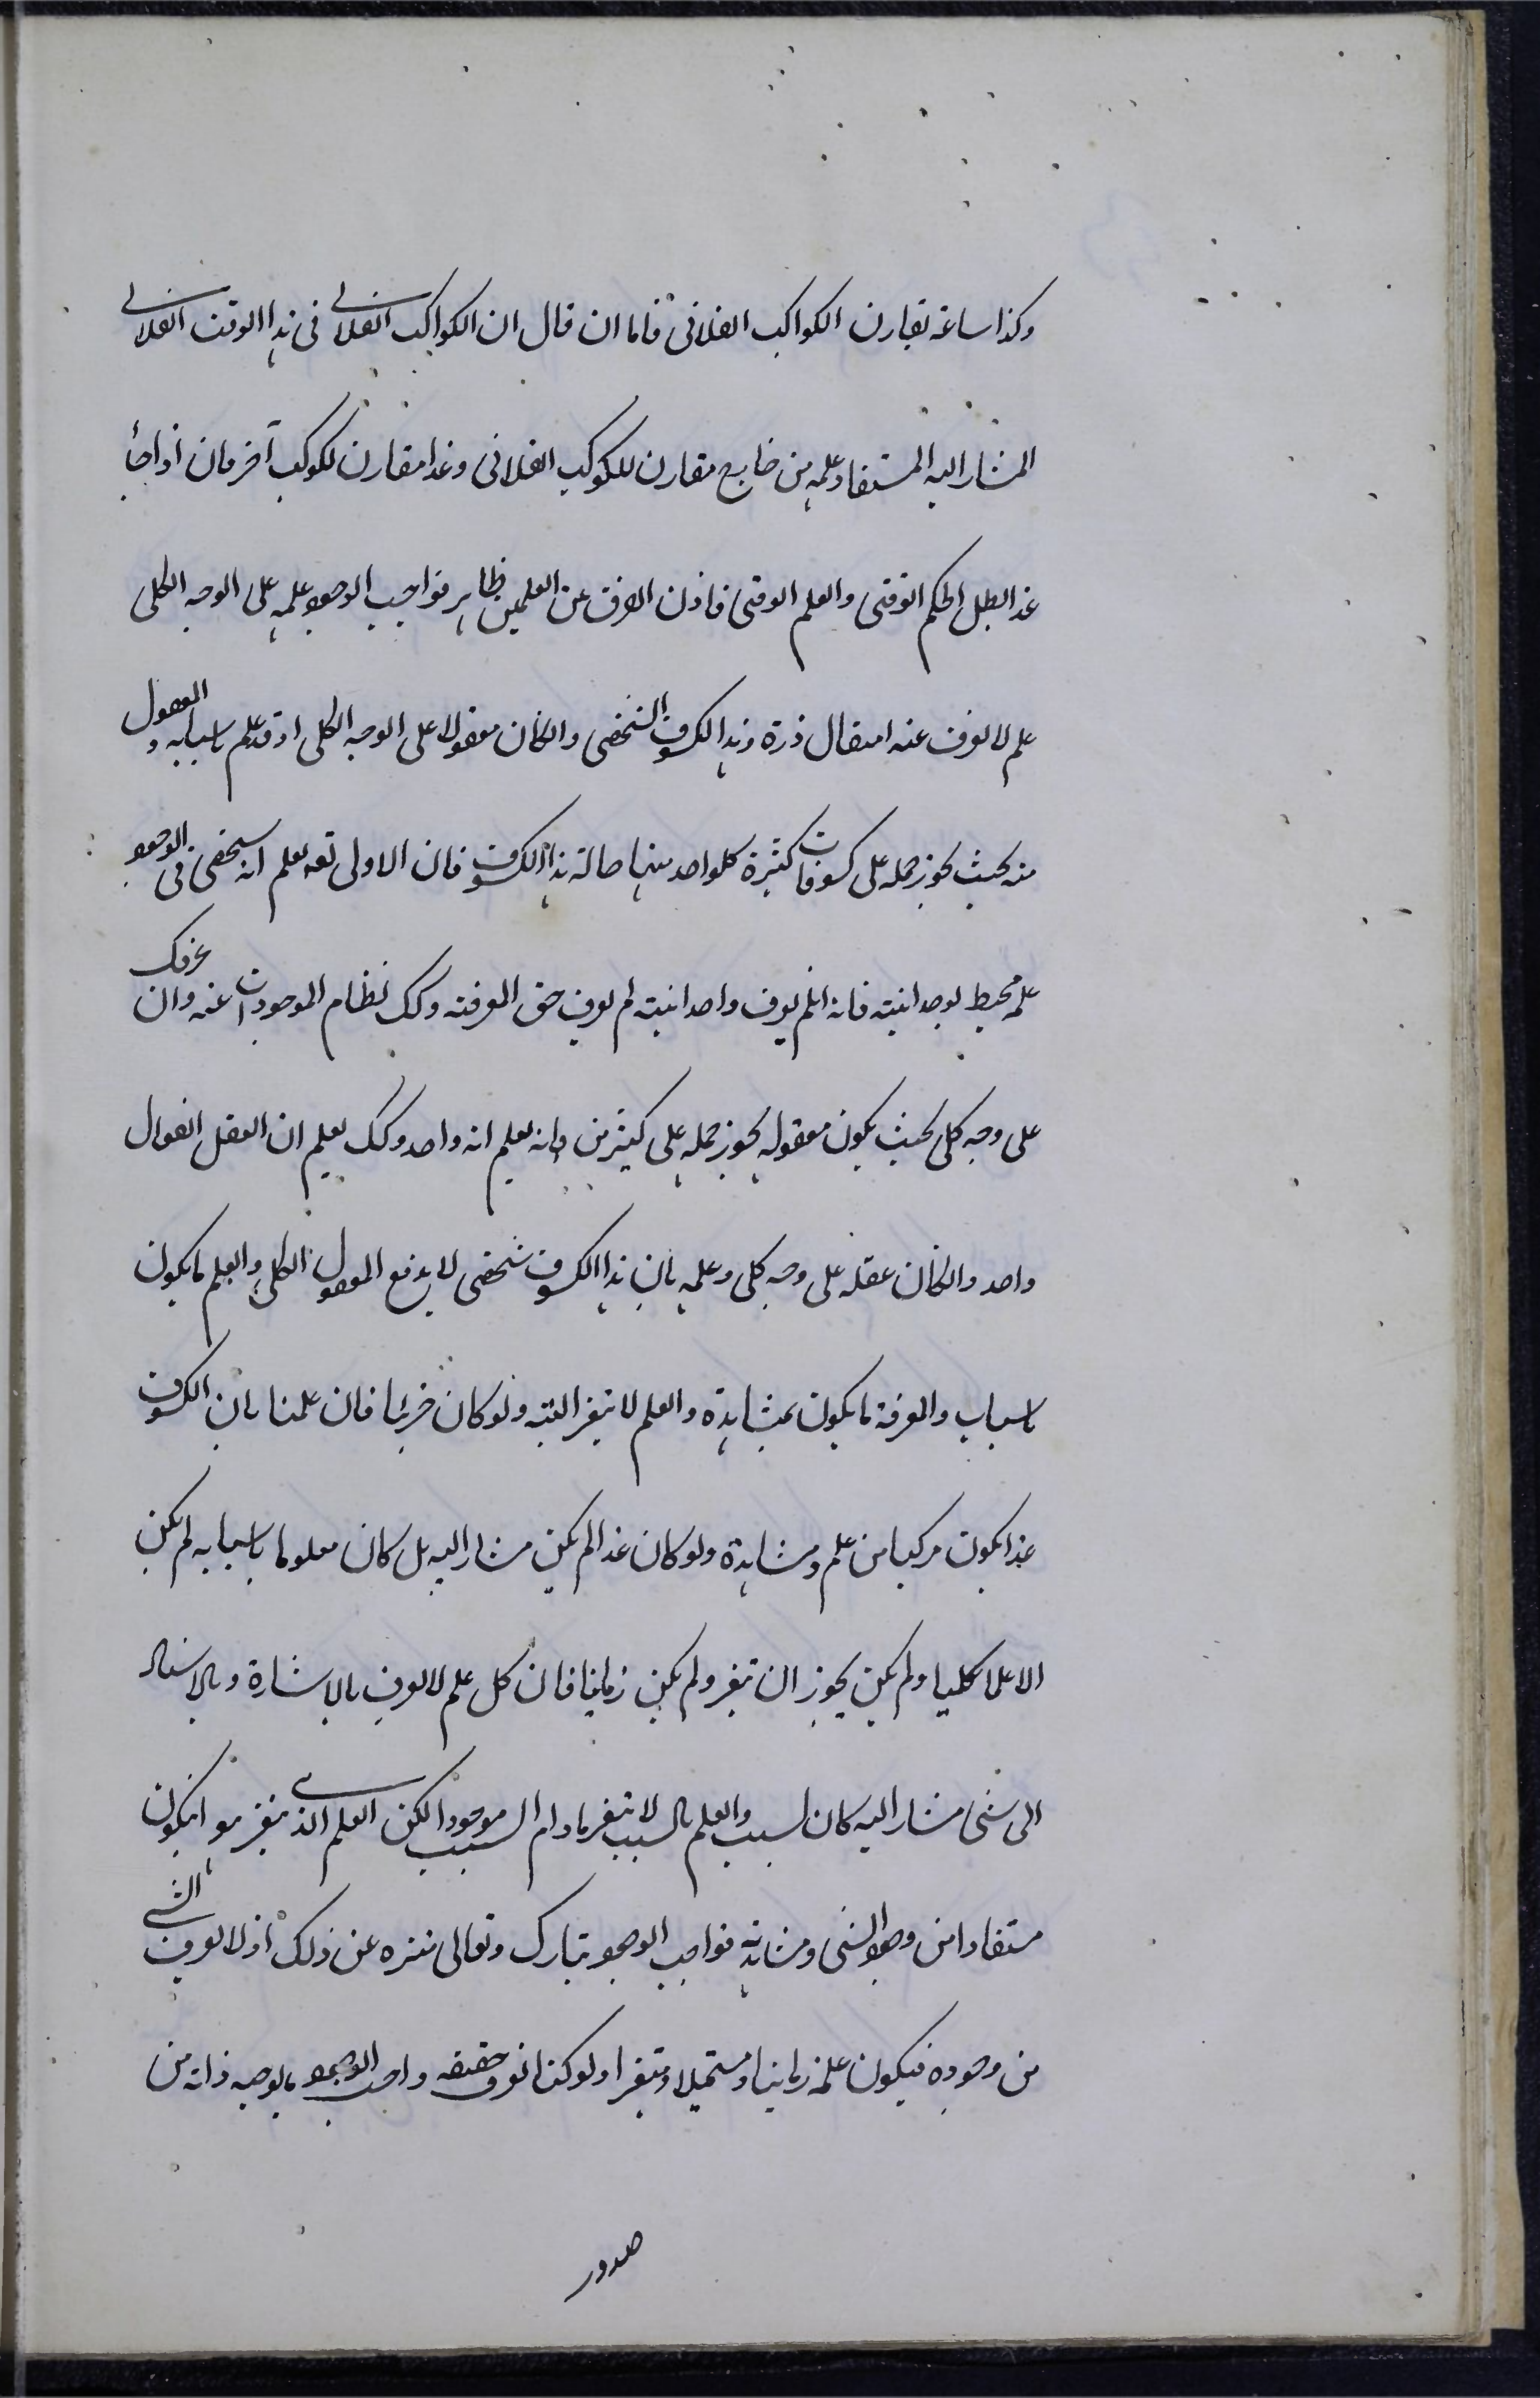 وكذا ساعة تقارن الكواكب الفلانى فاما ان قال ان الكواكب الفلانى فى هذا الوقت الفلانى
المشار اليه المستفاد علمه من خارج مقارن للكوكب الفلانى وغدا مقارن لكوكب آخر فان اذا جاء
غد ابطل الحكم الوقتى والعلم الوقتى فاذن الفرق عن العلمين ظاهر فواجب الوجود علمه على الوجه الكلى
علم لا يعزف عنه امثقال ذرة وهذا الكسوف الشخصى وانكان معقولا على الوجه الكلى اذ قد علم باسبابه والمعقول
منه بحيث يجوز حمله على كسوفات كثيرة كلواحد منها حالة هذا الكسوف فان الاولى تعه يعلم انه شخصى فى الوجود
علمه محيط بوحدانيته فانه انلم يعرف واحدانيته لم يعرف حق المعرفته وكك نظام الموجودات عنه وان عرفك
على وجه كلى بحيث يكون معقوله يجوز حمله على كثيرين وانه يعلم انه واحد وكك يعلم ان العقل الفعال
واحد وانكان عقله على وجه كلى وعلمه بان هذا الكسوف شخصى لا يدفع المعقول الكلى والعلم ما يكون
باسباب والمعرفة ما يكون بمشاهدة والعلم لا يتغير البته ولو كان جزئيا فان علمنا بان الكسوف
غدا يكون مركبا من علم ومشاهدة ولو كان غدا لم يكن مشارا اليه بل كان معلوما باسبابه لم يكن
الا علما كليا ولم يكن يجوز ان يتغير ولم يكن زمانيا فان كل علم لا يعرف بالاشارة وبالاستناد
الى شئ مشار اليه كان لسبب والعلم بالسبب لا يتغير مادام السبب موجودا لكن العلم الذى يتغير هو ان يكون
مستفادا من وجود الشى ومشاهدته فواجب الوجود تبارك وتعالى منزه عن ذلك اذ لا يعرف الشى
من وجوده فيكون علمه زمانيا ومستحيلا ومتغيرا ولو كنا نعرف حقيقه واجب الوجود ما يوجبه ذاته من
صدور